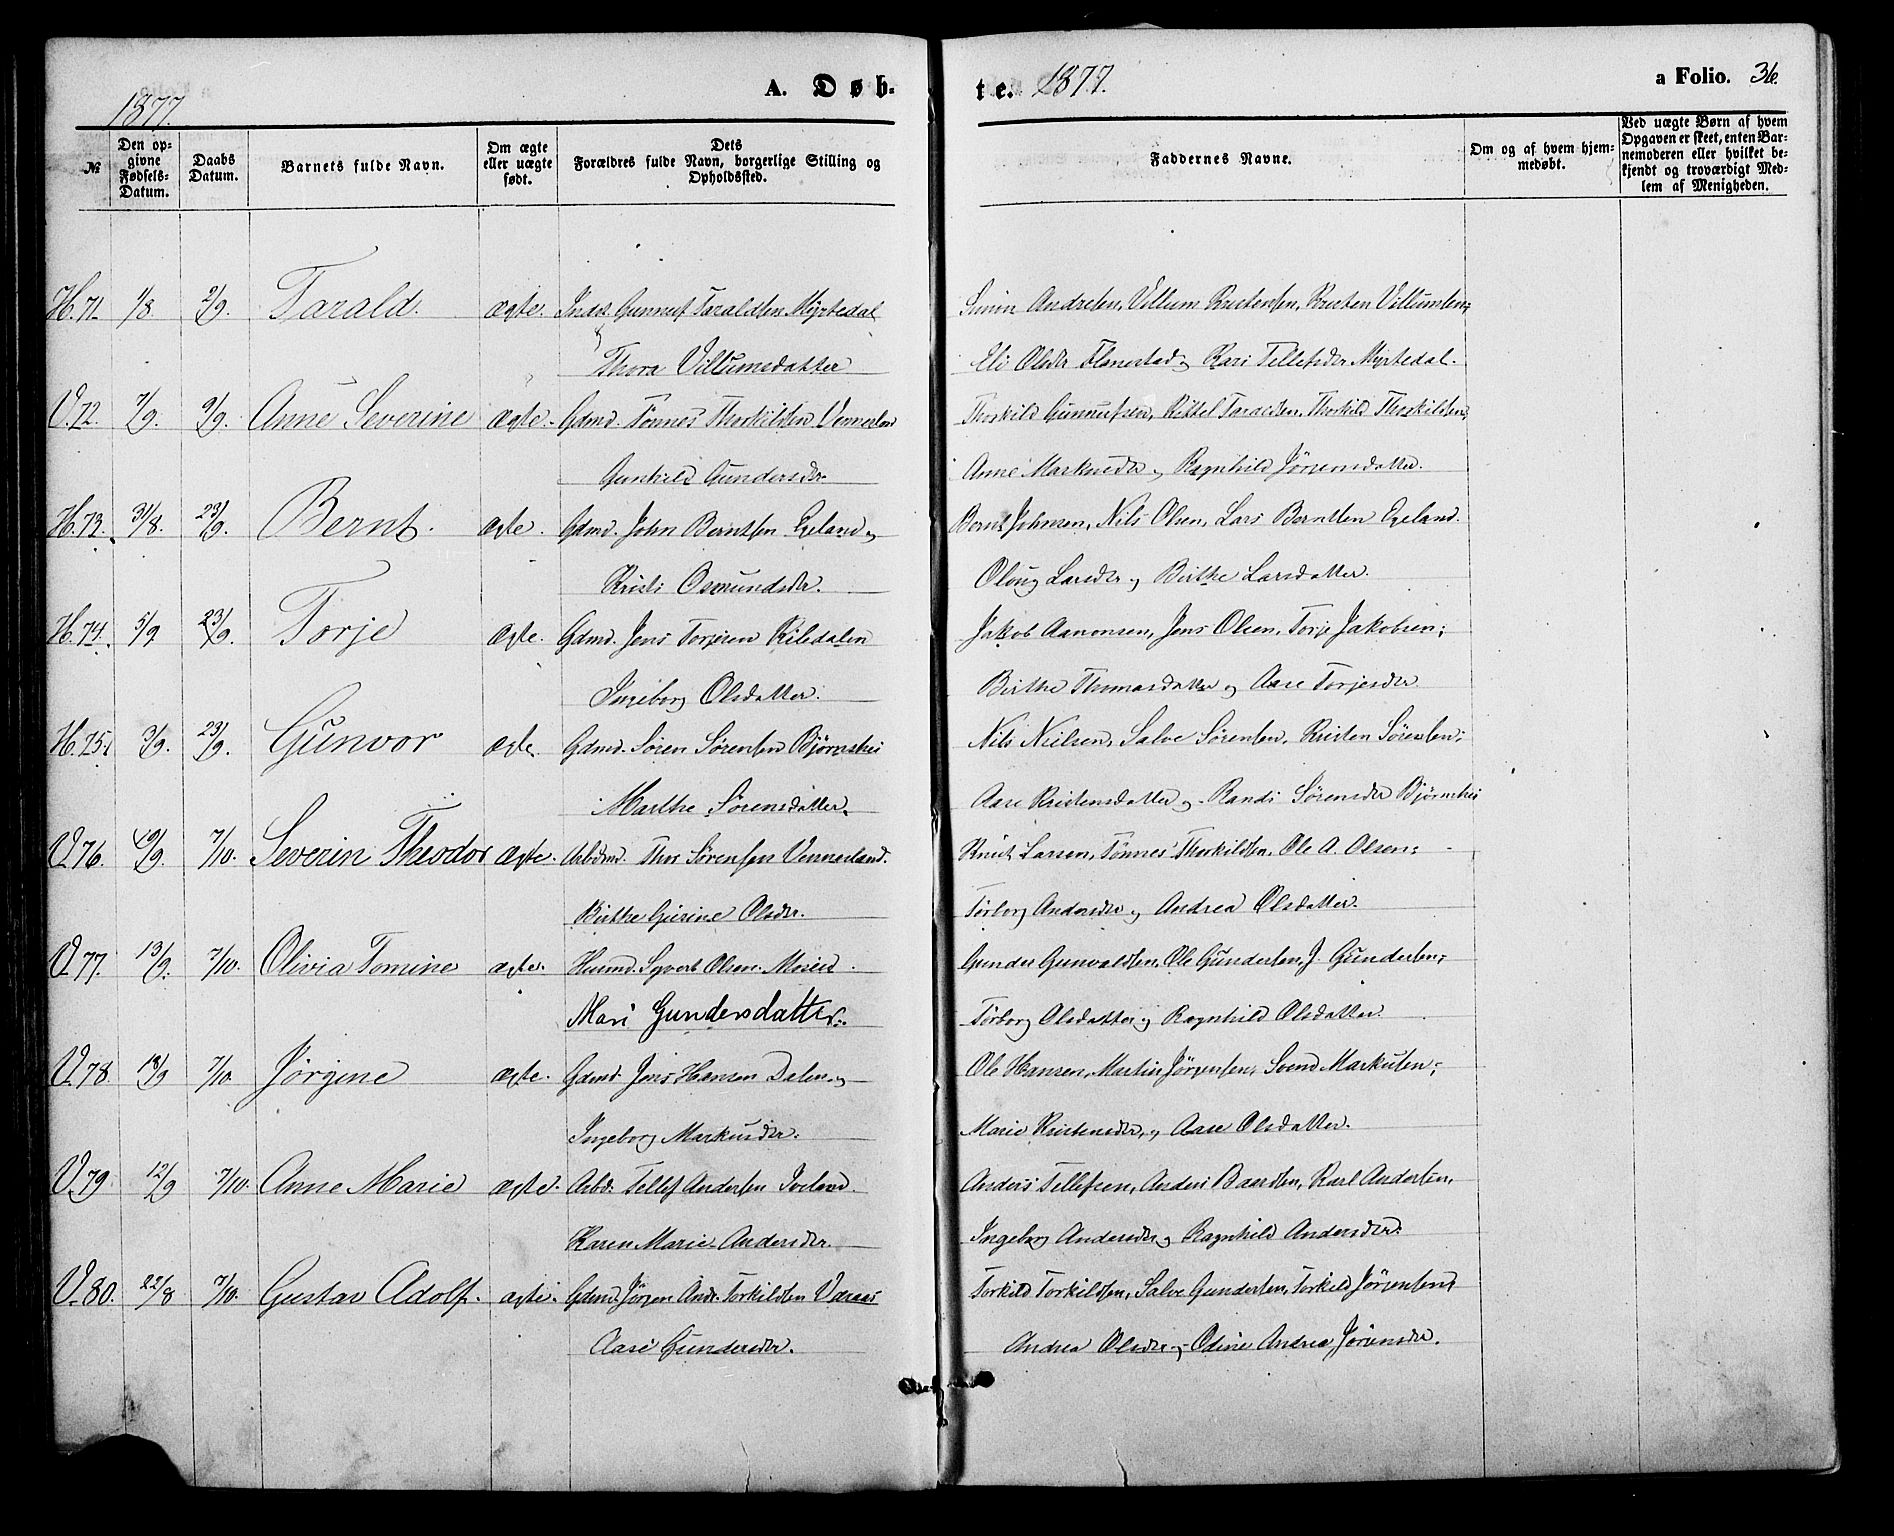 1877.
A. Døb-
te. 1877.
a Folio. 36.
№
Den opgivne Fødsels-Datum.
Daabs Datum.
Barnets fulde Navn.
Om ægte eller uægte født.
Dets Forældres fulde Navn, borgerlige Stilling og Opholdssted.
Faddernes Navne.
Om og af hvem hjemmedøbt.
Ved uægte Børn af hvem Opgaven er skeet, enten Barnemoderen eller hvilket bekjendt og troværdigt Medlem af Menigheden.
H. 71. 1/8. 2/9. Tarald. ægte. Inds. Gunnuf Taraldsen Myrtedal Simon Andresen, Villum Kristensen, Kristen Villumsen;
& Thora Villumsdatter Eli Olsdr Flanestad og Kari Tellefsdr Myrtedal.
V. 72. 7/9. 9/9. Anne Severine ægte. Gdmd. Tønnes Thorkildsen Vennerland Thorkild Gunnufsen, Kittel Taraldsen, Thorkild Thorkildsen,
Gunhild Gundersdr. Anne Markusdr og Ragnhild Jørensdatter.
H. 73. 31/8. 23/9. Bernt. ægte. Gdmd. John Berntsen Egeland og Bernt Johnsen, Nils Olsen, Lars Berntsen Egeland.
Kristi Osmundsdr. Oloug Larsdr og Birthe Larsdatter.
H. 74. 5/9 23/9. Torje ægte. Gdmd. Jens Torjesen Kiledalen Jakob Aanonsen, Jens Olsen, Torje Jakobsen;
Ingeborg Olsdatter. Birthe Thomasdatter og Aase Torjesdr
H. 75. 3/9. 23/9. Gunvor ægte Gdmd. Søren Sørensen Bjørnshei Nils Nielsen, Salve Sørensen, Kristen Sørensen;
Marthe Sørensdatter. Aase Kristensdatter og Randi Sørensdr Bjørnshei
V. 76. 10/9. 7/10. Severin Theodor ægte. Arbdmd. Thor Sørensen Vennerland. Knut Larsen, Tønnes Thorkildsen, Ole A. Olsen;
Birthe Gurine Olsdr. Torborg Andersdr og Andrea Olsdatter.
V. 77. 13/9. 7/10. Olivia Tomine ægte. Husmd. Syvert Olsen Moseid. Gunder Gunvaldsen, Ole Gundersen, J. Gundersen;
Mari Gundersdatter. Torborg Olsdatter og Ragnhild Olsdatter.
V. 78. 18/9 7/10. Jørgine ægte. Gdmd. Jens Hansen Dalen og Ole Hansen, Martin Jørgensen, Svend Markusen;
Ingeborg Markusdr. Marie Kristensdr, og Aase Olsdatter.
V. 79. 12/9 7/10. Anne Marie ægte. Arbd. Tellef Andersen Iveland. Anders Tellefsen, Anders Baardsen, Karl Andersen,
Karen Marie Andersdr. Ingeborg Andersdr og Ragnhild Andersdr.
V. 80. 22/8 7/10. Gustav Adolf. ægte. Gdmd. Jørgen Andr. Torkildsen Varaas Torkild Torkildsen, Salve Gundersen, Torkild Jørgensen;
Aase Gundersdr. Andrea Olsdr og Odine Andrea Jørensdr.